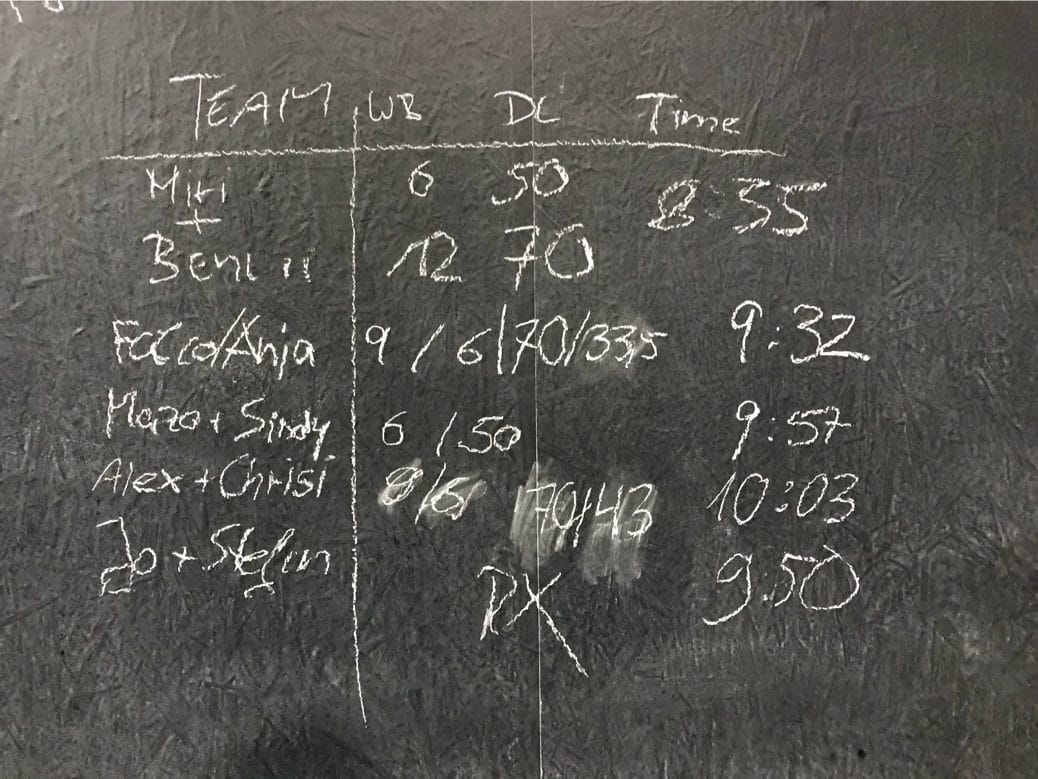 TEAM WB DL Time
Miri 6 50 8:35
+
12 70
/Anja 9 / 6/70/33,5 9:32
+ Sindy 6 / 50 9:57
Alex + Chrisi 8/6 70/43 10:03
Jo + Stefan RX 9:50